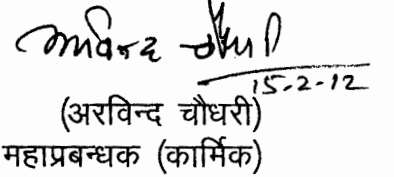 अरविन्द चौधरी
15-2-12
(अरविन्द चौधरी)
महाप्रबन्धक (कार्मिक)